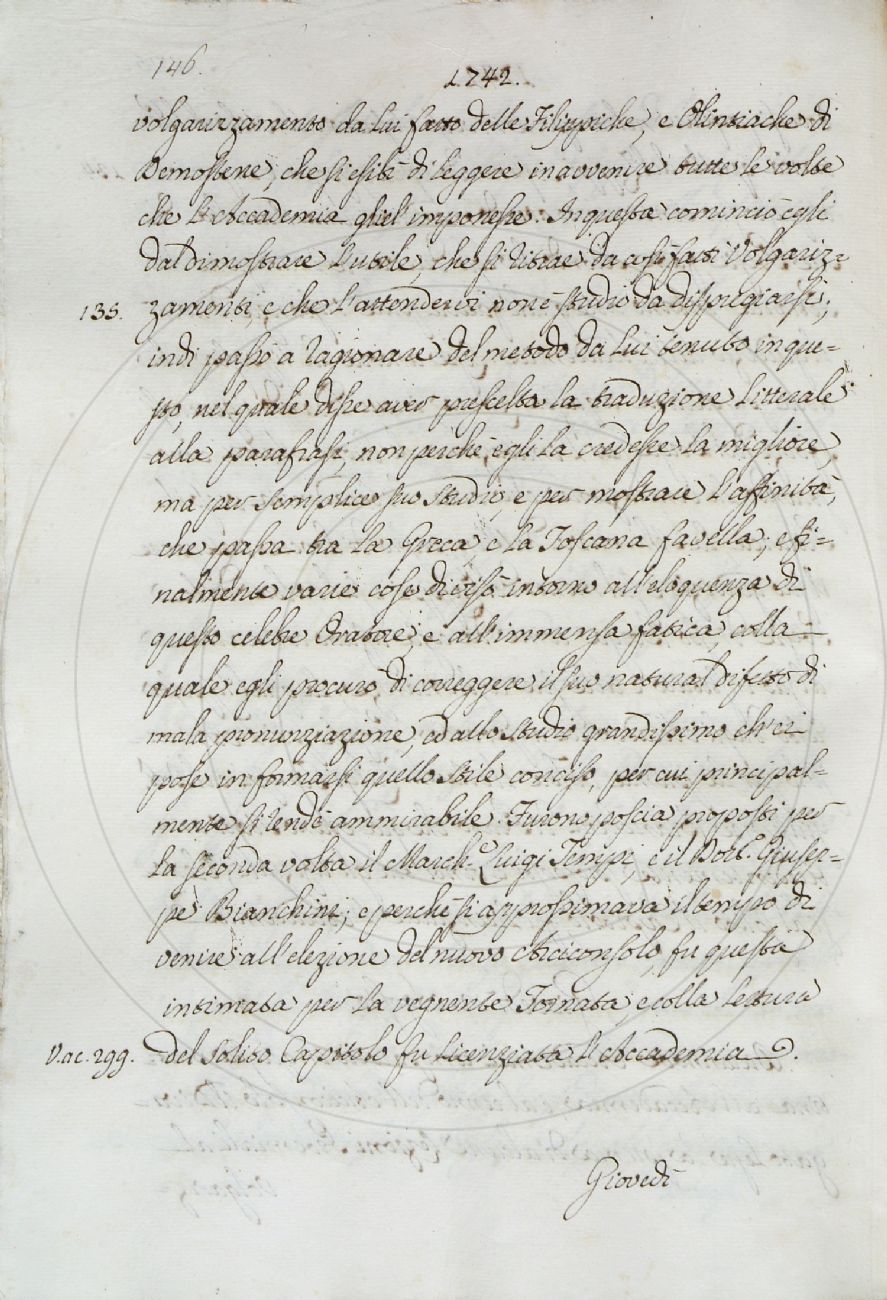 146.
1742.
volgarizzamento da lui fatto delle Filippiche, e Olintiache di
Demostene, che si esibì di leggere in avvenire tutte le volte
che l'Accademia gliel' imponesse. In questa cominciò egli
dal dimostrare l'utile, che si ritrae da così fatti Volgariz=
135. zamenti, e che l'attendervi non è studio da dispregiarsi;
indi passò a ragionare del metodo da lui tenuto in que=
sto, nel quale disse aver prescelta la traduzione litterale
alla parafrasi, non perchè egli la credesse la migliore,
ma per semplice suo studio, e per mostrare l'affinità,
che passa tra la Greca, e la Toscana favella; e fi=
nalmente varie cose divisò intorno all'eloquenza di
questo celebre Oratore, e all'immensa fatica, colla
quale egli procurò di correggere il suo natural difetto di
mala pronunziazione, ed allo studio grandissimo ch'ei
pose in formarsi quello stile conciso, per cui principal=
mente si rendè ammirabile. Furono poscia proposti per
la seconda volta il March.e Luigi Tempi, e il Dott.e Giusep=
pe Bianchini; e perchè si approssimava il tempo di
venire all'elezione del nuovo Arciconsolo, fu questa
intimata per la vegnente Tornata, e colla lettura
V. ac. 299. del solito Capitolo fu licenziata l'Accademia.
Giovedì